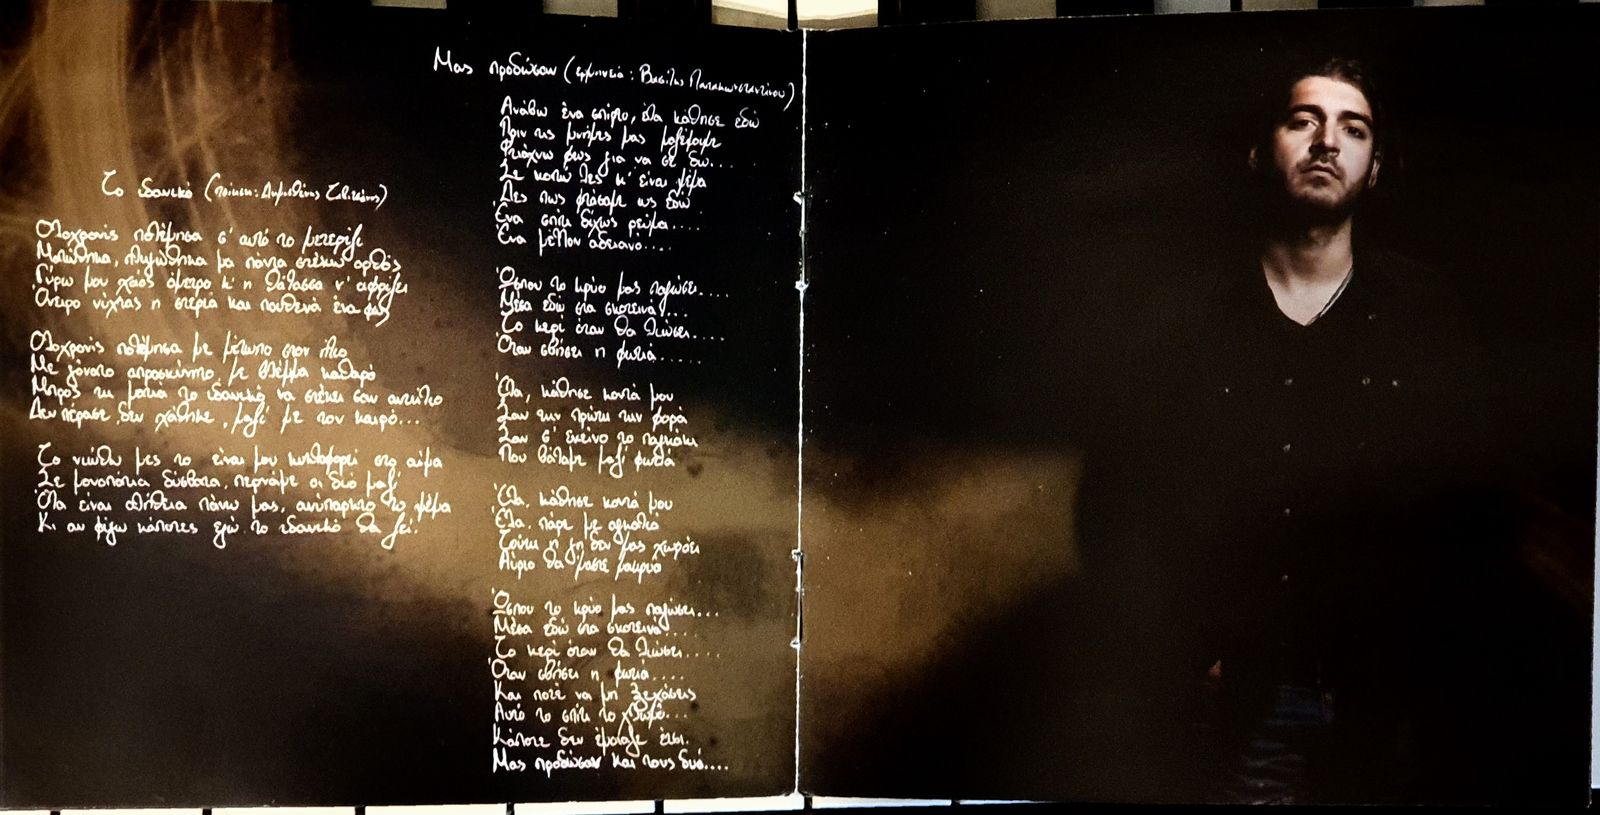 Το ιδανικό (ποίηση: Δημοσθένης
Ολοχρονίς πολέμησα σ' αυτό το μετερίζι
Ματώθηκα, πληγώθηκα μα πάντα στέκω ορθός
Γύρω μου χάος άμετρο κ' η θάλασσα ν' αφρίζει
Όνειρο νύχτας η στεριά και πουθενά ένα φως
Ολοχρονίς πολέμησα με μέτωπο στον ήλιο
Με γόνατο απροσκύνητο, με βλέμμα καθαρό
Μπρος τη ματιά το ιδανικό να στέκει σαν αντήλιο
Δεν πέρασε, δεν χάθηκε, μαζί με τον καιρό...
Το νιώθω μες το είναι μου κυκλοφορεί στο αίμα
Σε μονοπάτια δύσβατα, περνάμε οι δυο μαζί
Όλα είναι αλήθεια πάνω μας, ανύπαρκτο το ψέμα
Κι αν φύγω κάποτες εγώ το ιδανικό θα ζει.
Μας πρόδωσαν (ερμηνεία: Βασίλης Παπακωνσταντίνου)
Ανάβω ένα σπίρτο, έλα κάθησε εδώ
Πριν τις μνήμες μας μαζέψουμε
Φτιάχνω φως για να σε δω...
Σε κοιτώ λες κ' είναι ψέμα
Δες πως φτάσαμε ως εδώ
Ένα σπίτι δίχως ρεύμα....
Ένα μέλλον αδειανό....
Ώσπου το κρύο μας παγώσει....
Μέσα εδώ στα σκοτεινά...
Το κερί όταν θα λιώσει....
Όταν σβήσει η φωτιά.....
Έλα, κάθησε κοντά μου
Σαν την πρώτη την φορά
Σαν σ' εκείνο το παγκάκι
Που βάλαμε μαζί φωτιά
Έλα, κάθησε κοντά μου
Έλα, πάρε με αγκαλιά
Τούτη η γη δεν μας χωράει
Αύριο θα 'μαστε μακριά
Ώσπου το κρύο μας παγώσει...
Μέσα εδώ στα σκοτεινά....
Το κερί όταν θα λιώσει....
Όταν σβήσει η φωτιά....
Και ποτέ να μη ξεχάσεις
Αυτό το σπίτι το χλωμό...
Κάποτε δεν έμοιαζε έτσι.
Μας πρόδωσαν και τους δυό....